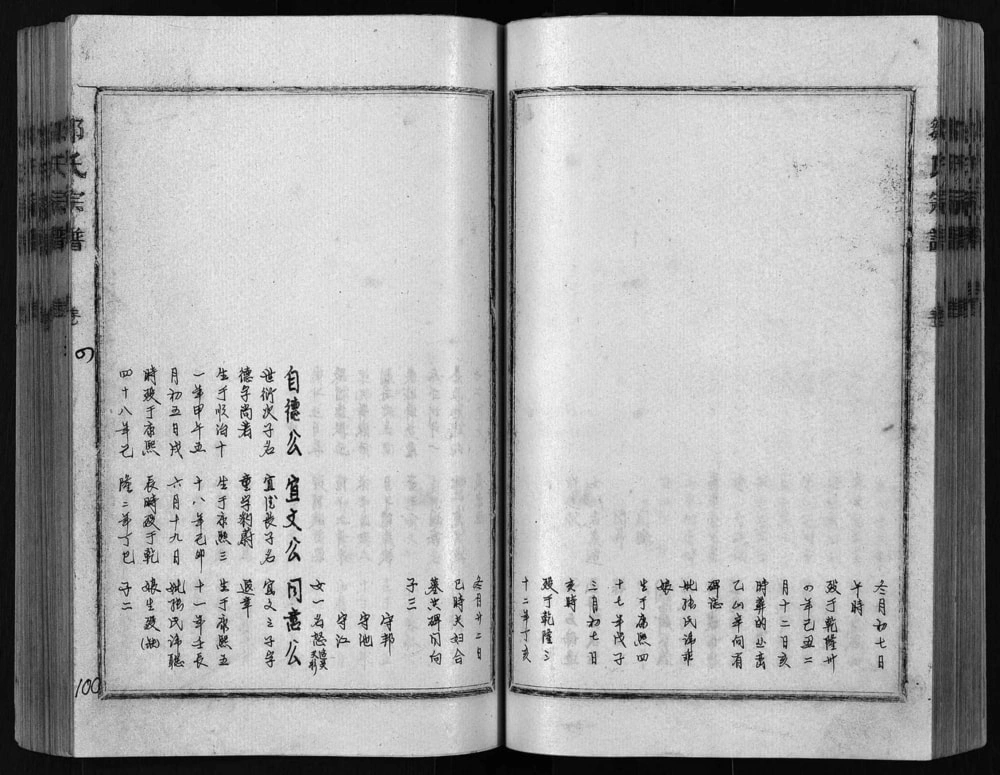 冬月初七日
午時
歿于乾隆卅
四年己丑二
月十二日亥
時葬的
乙山辛向有
碑誌
妣楊氏諱乖
娘
生于康熙四
十七年戊子
三月初七日
亥時
歿于乾隆三
十二年丁亥
冬月廿二日
巳時夫妇合
墓共碑同向
子三
守邦
守池
守江
女一名
自德公
世衍次子名
德字尚著
生于順治十
一年甲午五
月初五日戌
時歿于康熙
四十八年己
宜文公
宜德長子名
童字豹蔚
生于康熙三
十八年己卯
六月十九日
長時歿于乾
隆二年丁巳
問鸞公
宜文之子字
遐章
生于康熙五
十一年壬辰
妣楊氏諱聪
娘生歿缺
子二
鄒氏宗譜
卷
四
100
鄒氏宗譜
卷